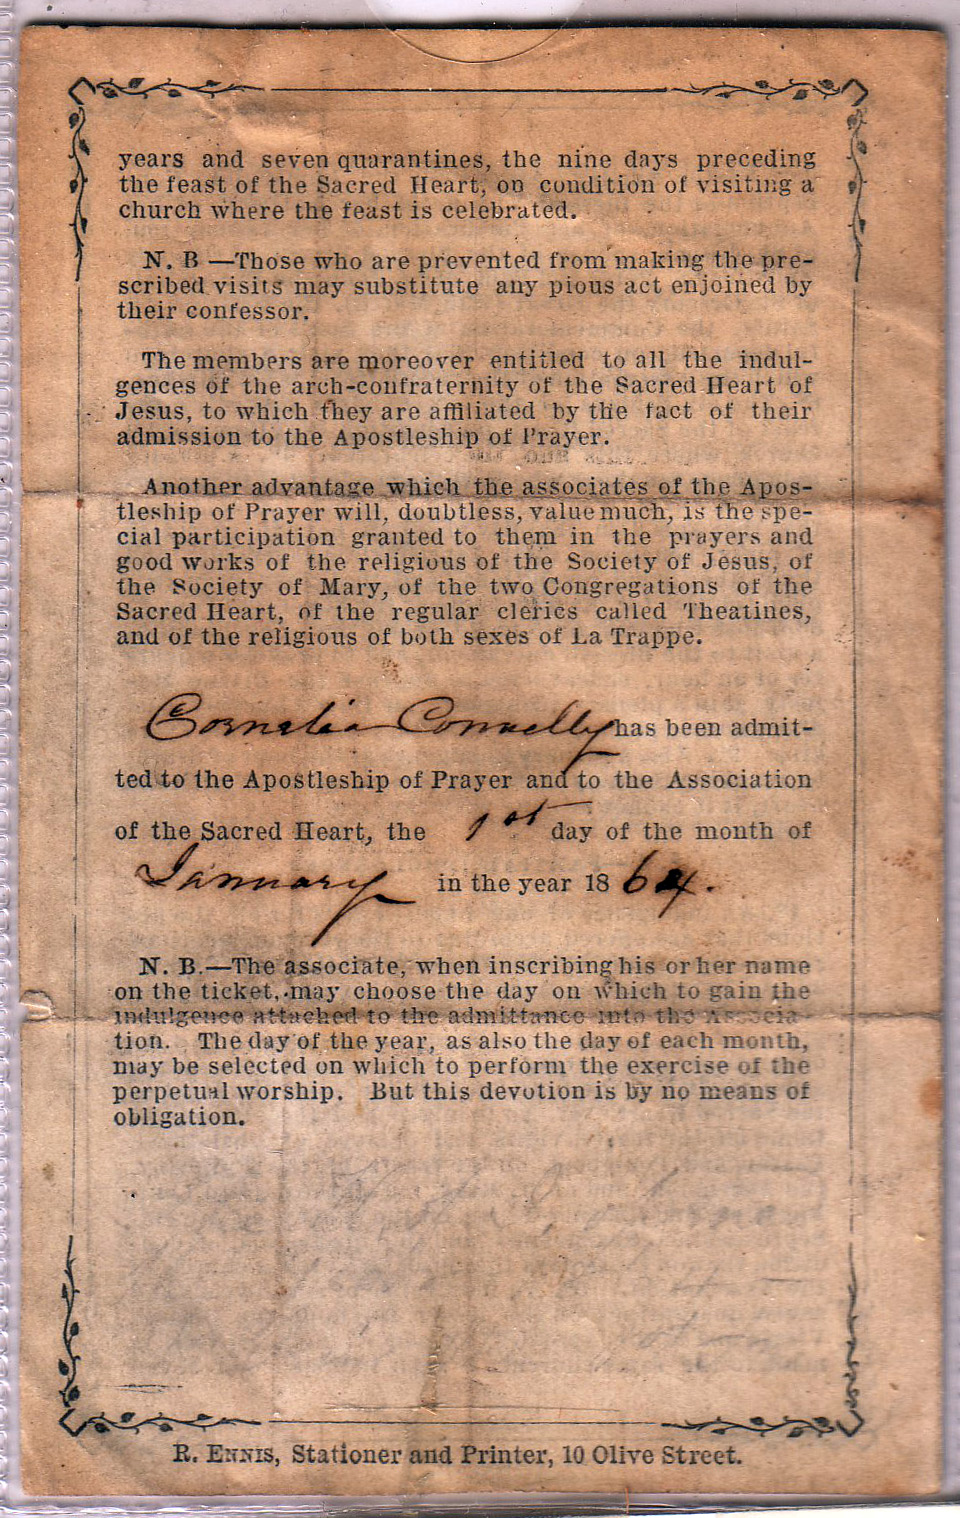 years and seven quarantines, the nine days preceding
the feast of the Sacred Heart, on condition of visiting a
church where the feast is celebrated.
N. B —Those who are prevented from making the pre-
scribed visits may substitute any pious act enjoined by
their confessor.
The members are moreover entitled to all the indul-
gences of the arch-confraternity of the Sacred Heart of
Jesus, to which they are affiliated by the fact of their
admission to the Apostleship of Prayer.
Another advantage which the associates of the Apos-
tleship of Prayer will, doubtless, value much, is the spe-
cial participation granted to them in the prayers and
good works of the religious of the Society of Jesus, of
the Society of Mary, of the two Congregations of the
Sacred Heart, of the regular clerics called Theatines,
and of the religious of both sexes of La Trappe.
Cornelia Connelly has been admit-
ted to the Apostleship of Prayer and to the Association
of the Sacred Heart, the 1st day of the month of
January in the year 1864.
N. B.—The associate, when inscribing his or her name
on the ticket, may choose the day on which to gain the
indulgence attached to the admittance into the Associa-
tion. The day of the year, as also the day of each month,
may be selected on which to perform the exercise of the
perpetual worship. But this devotion is by no means of
obligation.
R. ENNIS, Stationer and Printer, 10 Olive Street.